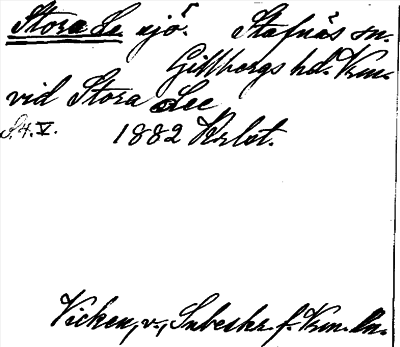 Stora Le sjö. Stafnäs sn.
Gillbergs hd. Krm.
vid Stora Lee
S.4.V. 1882 Krlst.
Vicken, v., Inbeskr. f. Krm. ln.